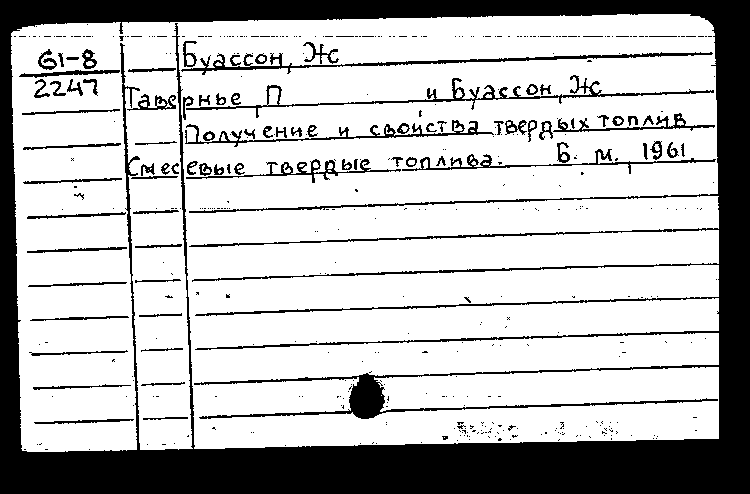 61-8 Буассон, Жс
2247
Тавернье, П и Буассон, Жс
Получение и свойства твердых топлив.
Смесевые твердые топлива. Б. м., 1961.